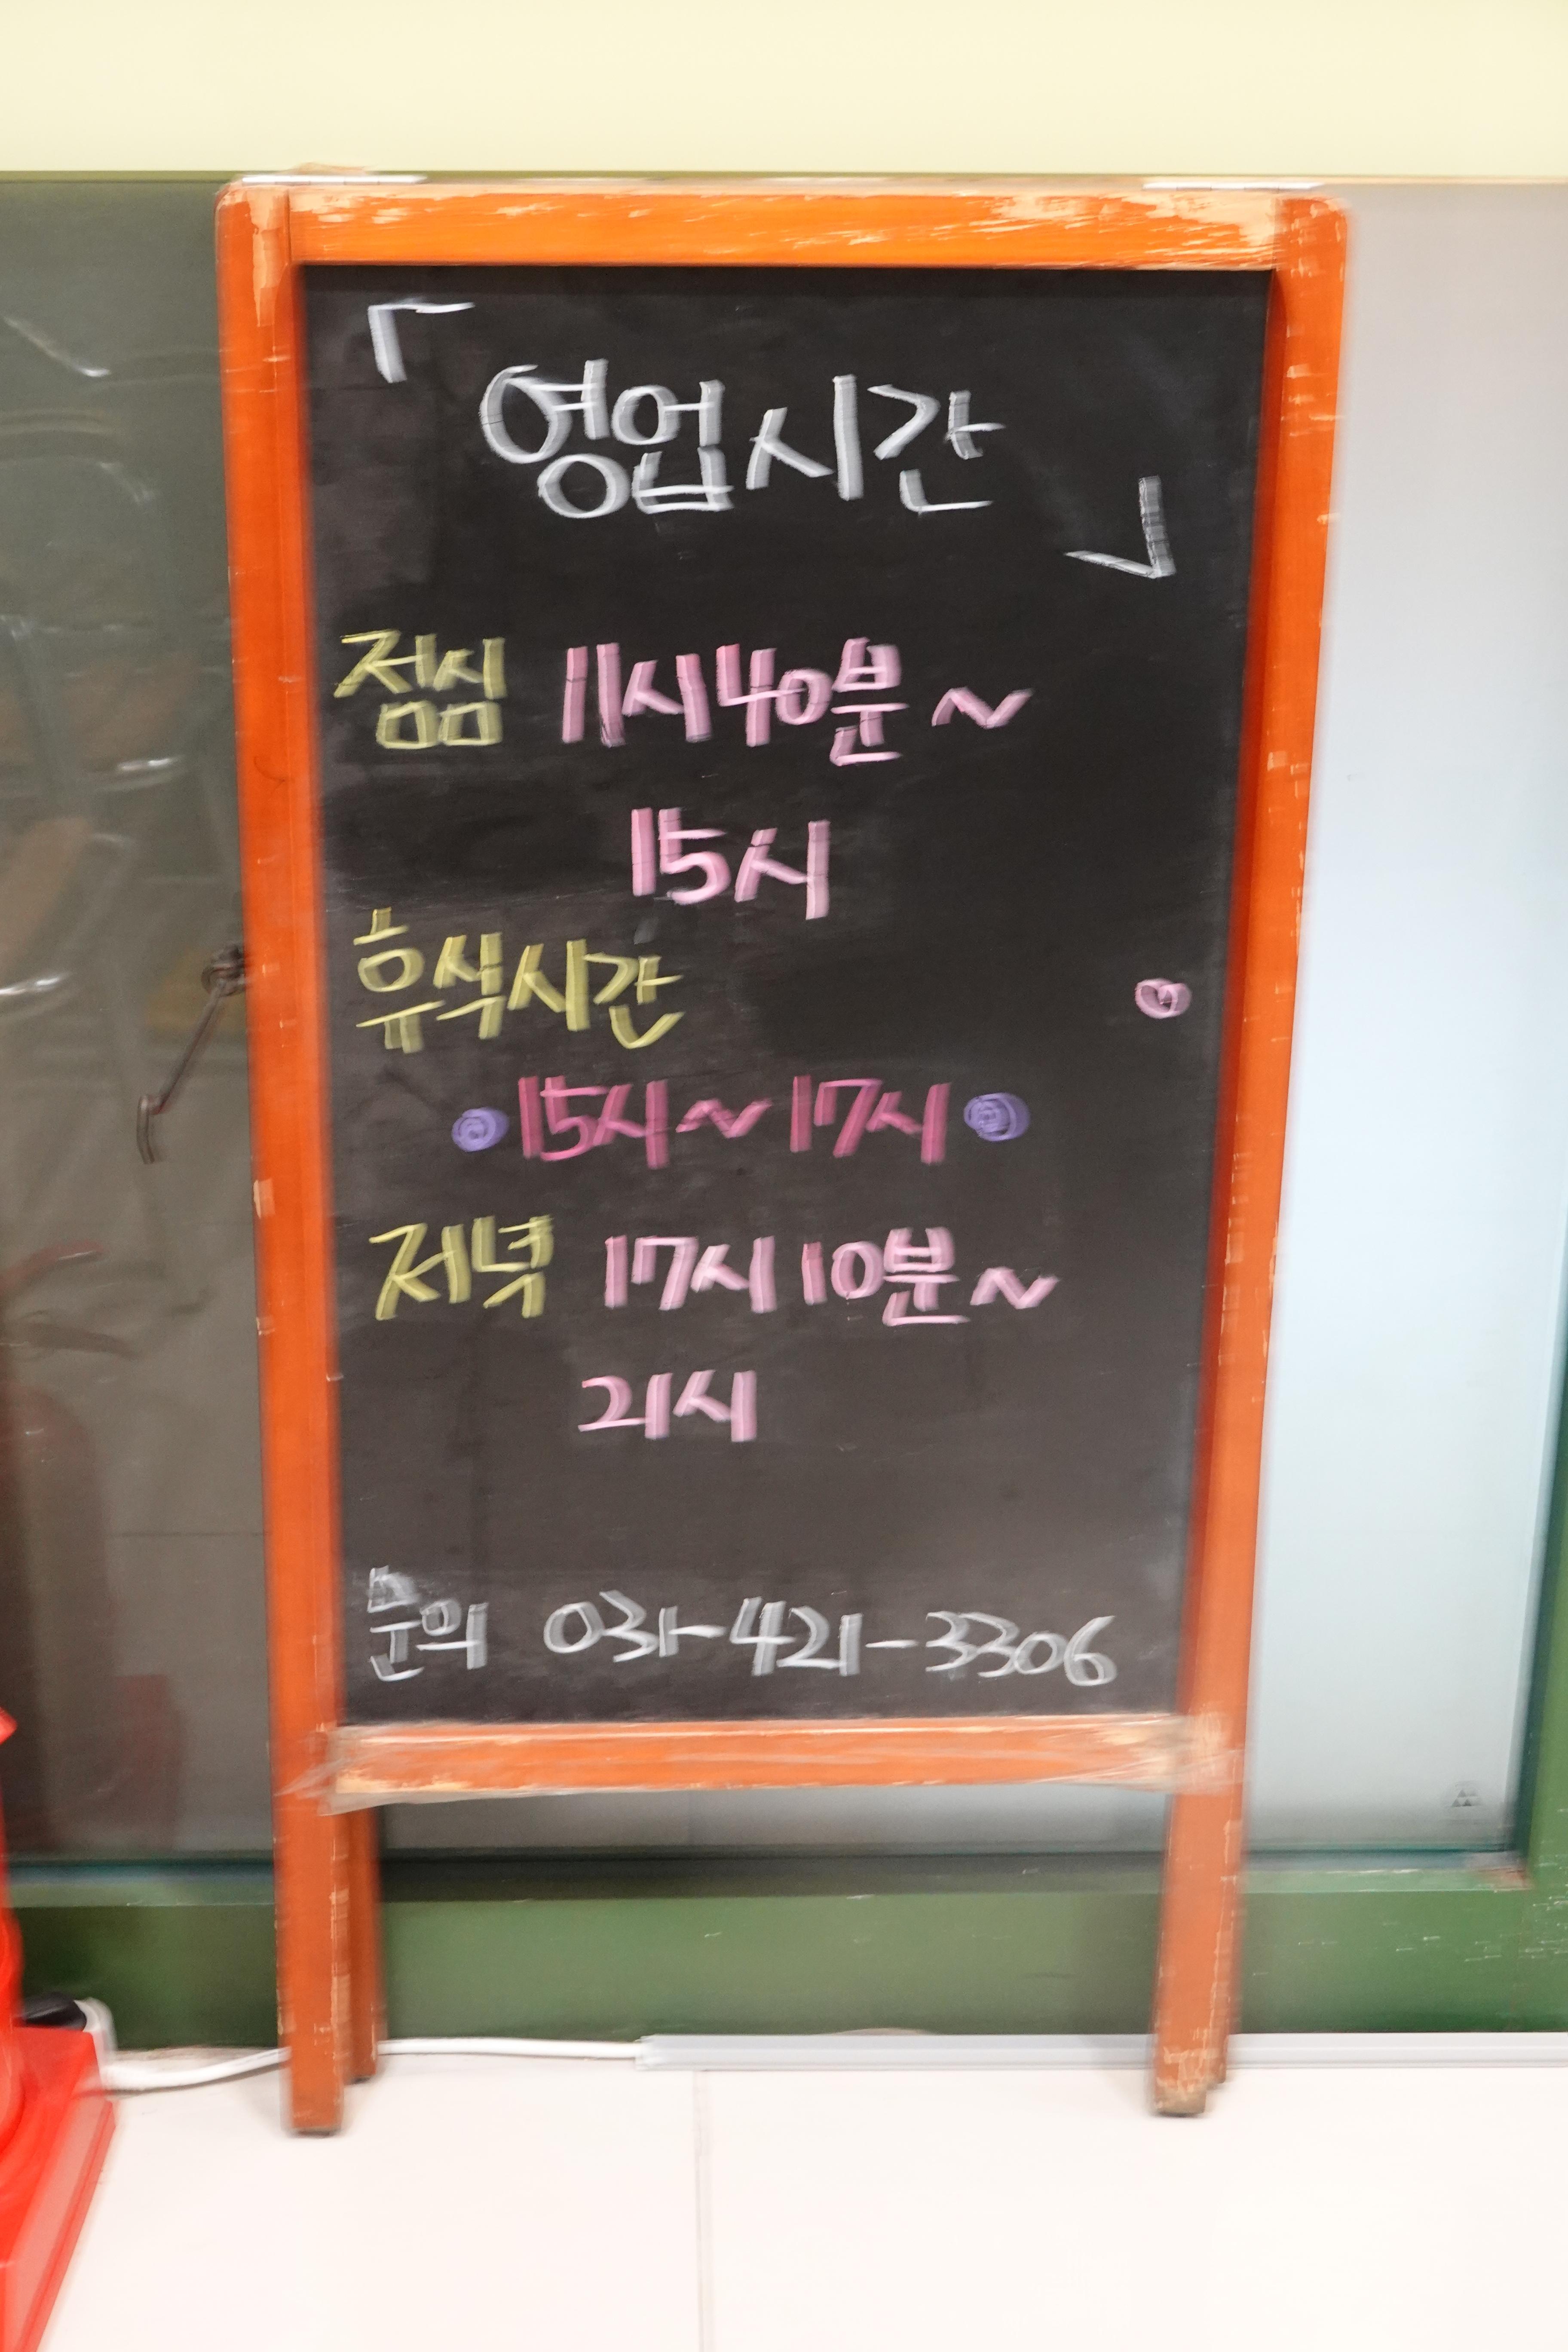 「영업시간」
점심 11시40분~
15시
휴식시간
15시~17시
저녁 17시10분~
21시
문의 031-421-3306